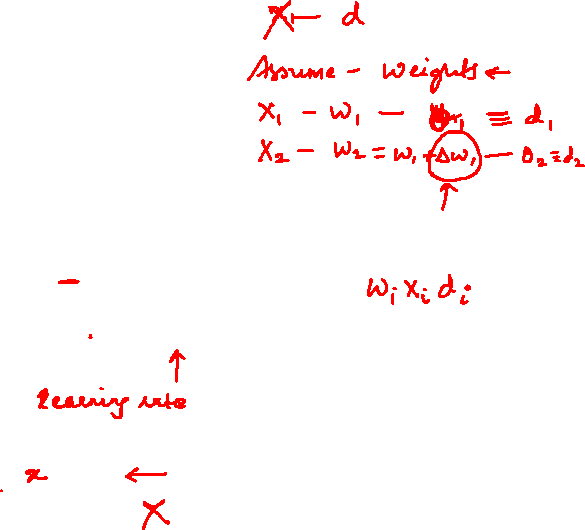 X ← d
Assume - Weights ←
X₁ - W₁ - ≡ d₁
X₂ - W₂ = W₁ + ΔW₁ - O₂ ≡ d₂
Wᵢ Xᵢ dᵢ
Learning rate
x ←
X